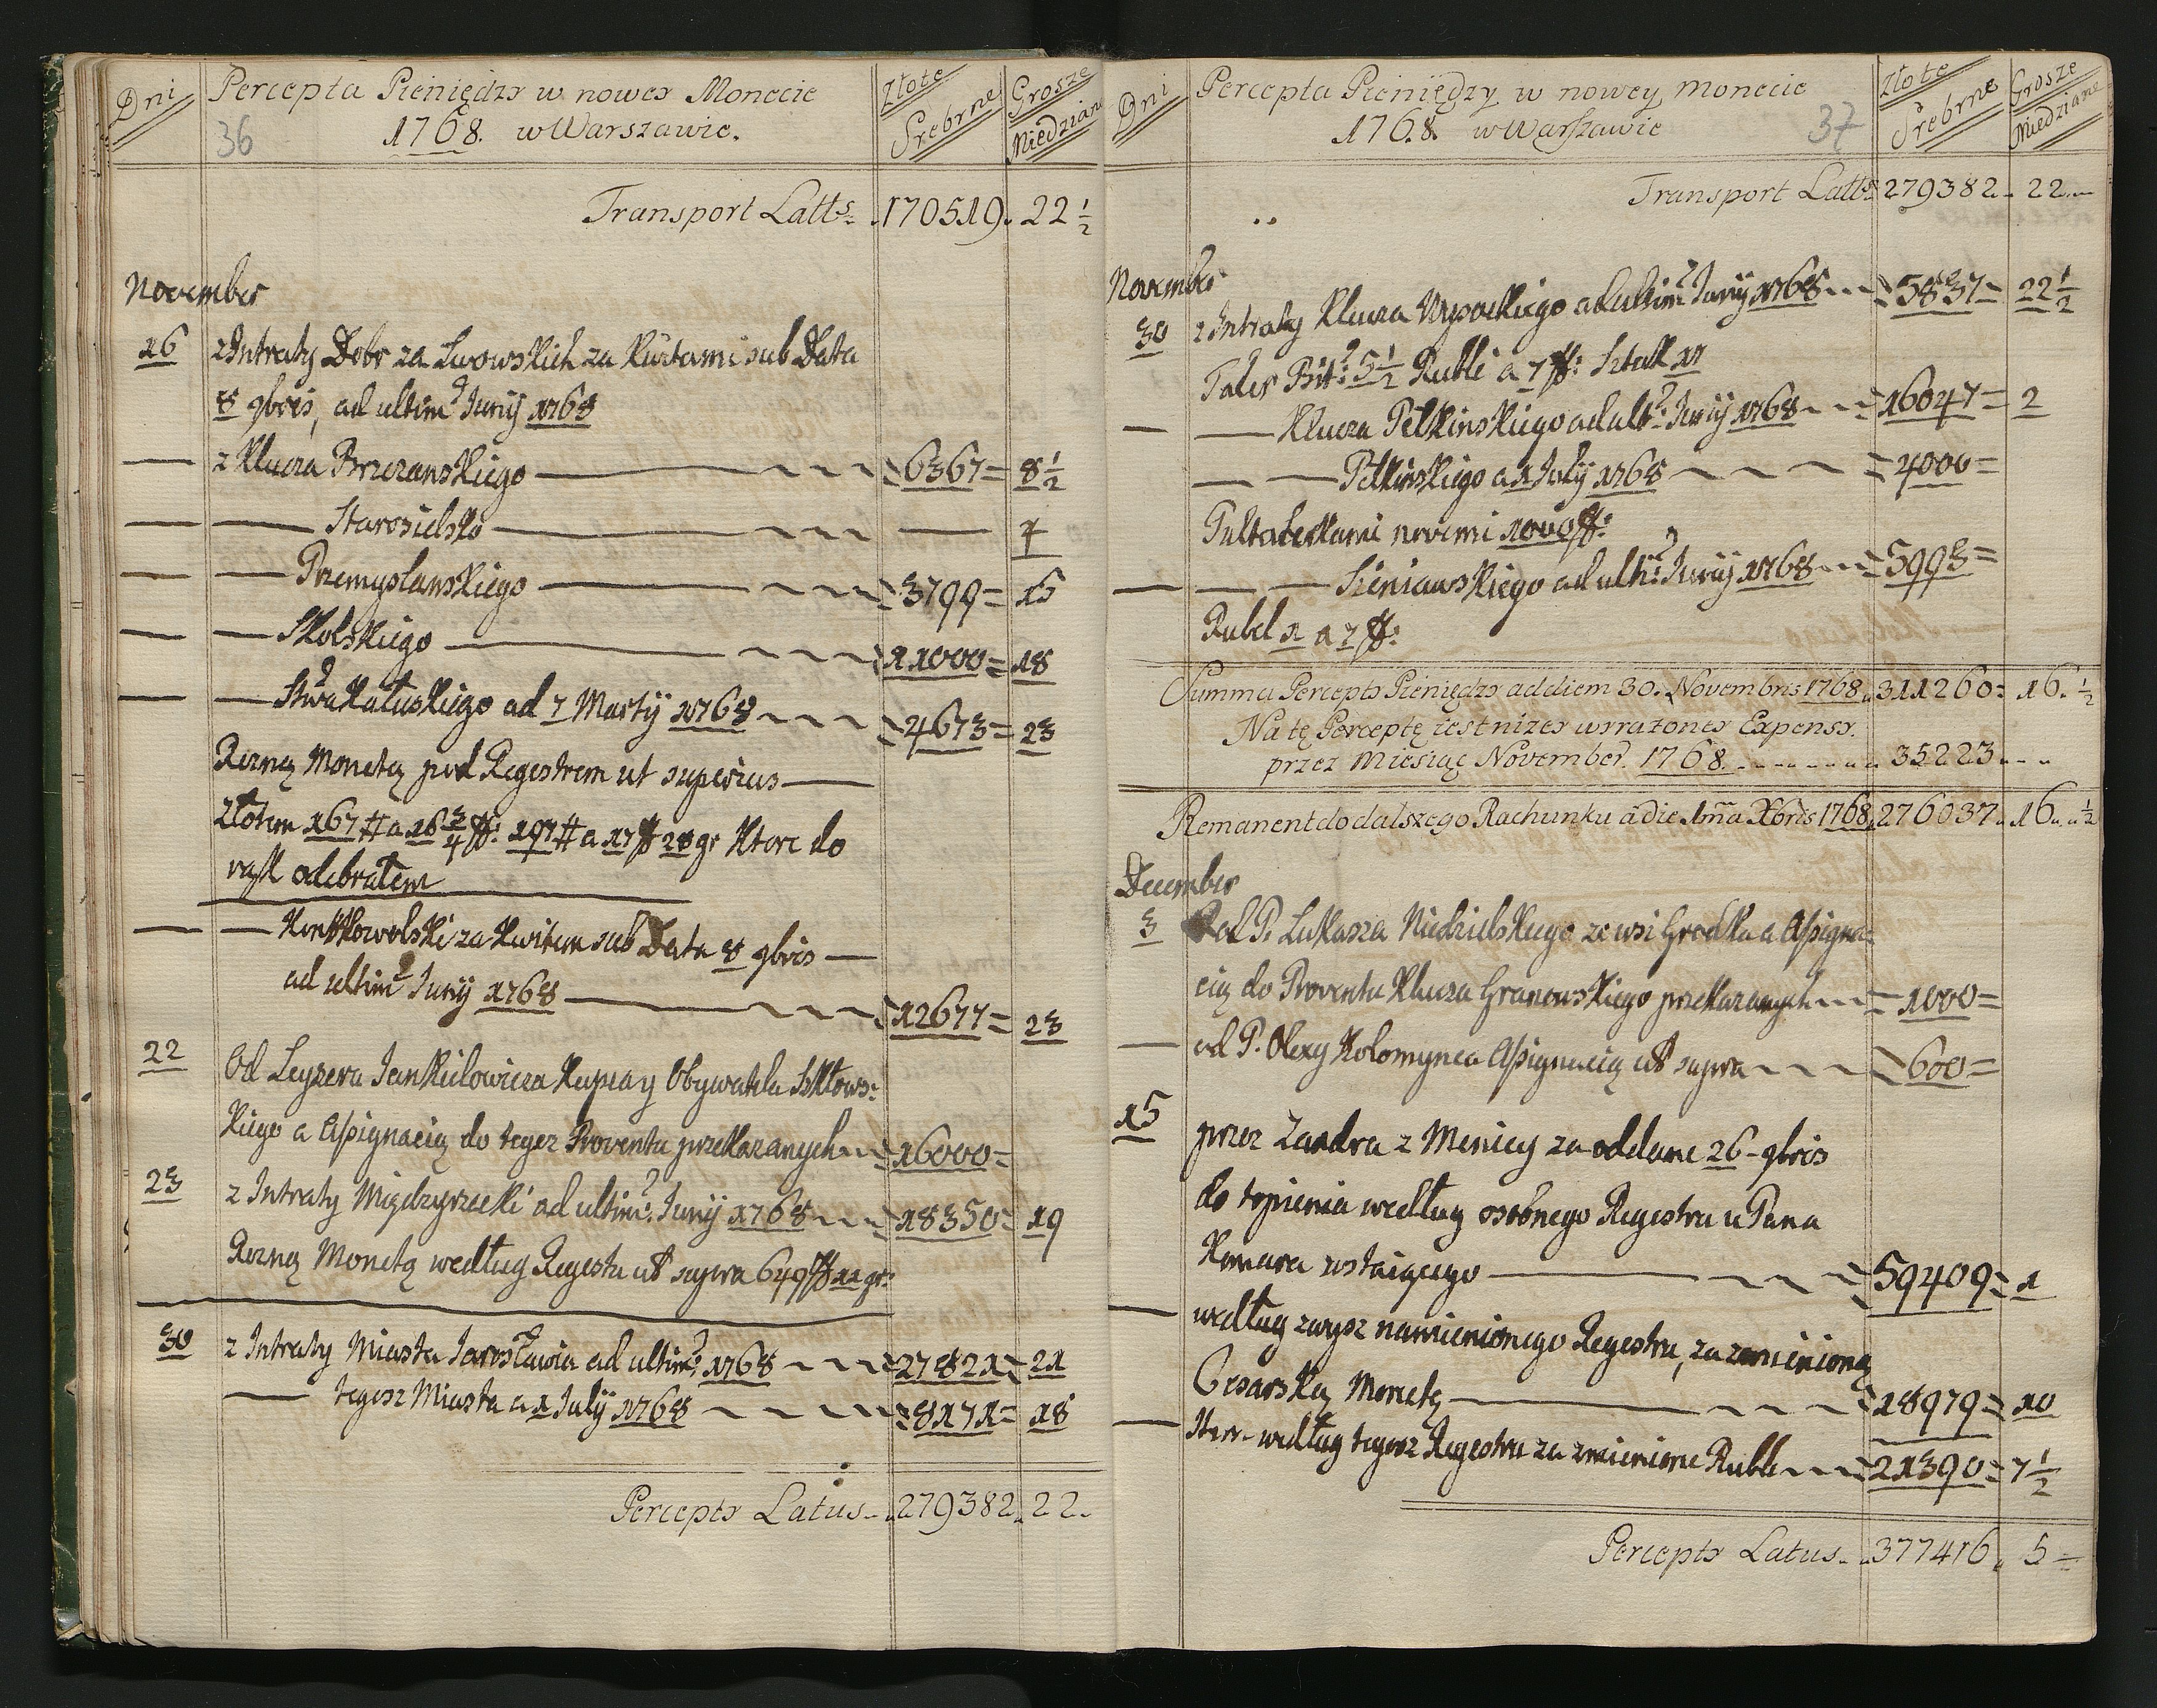 Dni
Percepta Pieniędzy w nowey Monecie
1768. w Warszawie.
Złote Srebrne
Grosze Miedziane
36
Transport Latt:s 170519. 22 1/2
November
16 z Intraty Dobr za Lwowskich za Kwitami sub Data
8 9bris, ad ultim: Junij 1768
— z Klucza Brzezanskiego — =6367= 8 1/2
— — Starosielsko — — 4
— — Przemyslanskiego — =3799= 15
— — Skolskiego — =11000= 18
— — Stwa Kałuskiego ad 7 Martij 1768 =4673= 23
Rożną Monetą pod Regestrem ut superius —
Złotem 167 # a 16 3/4 ff: 197 # a 17 ff 20 gr Ktore do
odebrałem
— — za Kwitem sub Data 8 9bris —
ad ultim: Junij 1768 — =12677= 23
22 Od Leyzera Jankielowicza Kupca y Obywatela Szkłows:
kiego a Assignacią do tegez Proventu przekazanych =16000=
23 z Intraty Międzyrzecki ad ultim: Junij 1768 =18350= 19
Rożną Monetą według Regestu ut supra 649 ff 11 gr:
30 z Intraty Miasta Jarosławia ad ultim: 1768 =27821= 21
— tegosz Miasta a 1 Julij 1768 =8171= 18
Percepty Latus. 279382. 22.
Dni
Percepta Pieniędzy w nowey monecie
1768. w Warszawie
Złote Srebrne
Grosze Miedziane
37
Transport Latt:s 279382. 22.
November
30 z Intraty Klucza Wysockiego ad ultim: Junij 1768 =5837= 22 1/2
Taler Bit: 5 1/2 Rubli a 7 ff: Sztuk 17
— — Klucza Pełkinskiego ad ult: Junij 1768 =16047= 2
— — Pełkinskiego a 1 Julij 1768 =4000=
Pułtalerkami novemi 1000 ff:
— — — Sieniawskiego ad ulti: Junij 1768 =5993=
Rubel 1 a 7 ff:
Summa Percepty Pieniędzy ad diem 30. Novembris 1768. 311260. 16. 1/2
Na tę Perceptę iest nizey wyrażoney Expensy.
przez Miesiąc November. 1768. 35223.
Remanent do dalszego Rachunku a die 1ma Xbris 1768. 276037. 16. 1/2
December
3 od P. Łukasza Niedzielskiego ze wsi Grodka a Assigna:
cią do Proventu Klucza Granowskiego przekazanych =1000=
— od P. Olexy Kołomyyca Assignacią ut supra =600=
15 przez Zandra z Menicy za oddane 26 9bris
do topienia według osobnego Regestru u Pana
Komara zostaiącego — =59409= 1
— według zwysz namienionego Regestru, za zamienioną
Cesarską Monetę — =18979= 10
— według tegosz Regestru za zmienione Ruble =21390= 7 1/2
Percepty Latus. 377416. 5